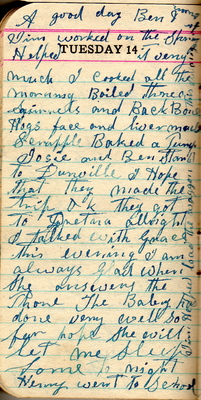 A good day Ben &
Tim worked on the
Helped it very
TUESDAY 14
much I cooked all the
morning Boiled three
Squirrels and Back Bone
Hogs face and liver made
Scrapple Baked a
Josie and Ben Started
to Dunville I Hope
that they made the
trip O k they got
to Dretna Allright
I talked with Grace
this evening I am
always glad when
she answers the
Phone The Baby has
done very well so
far hope she will
let me sleep
some to night
Henry went to School